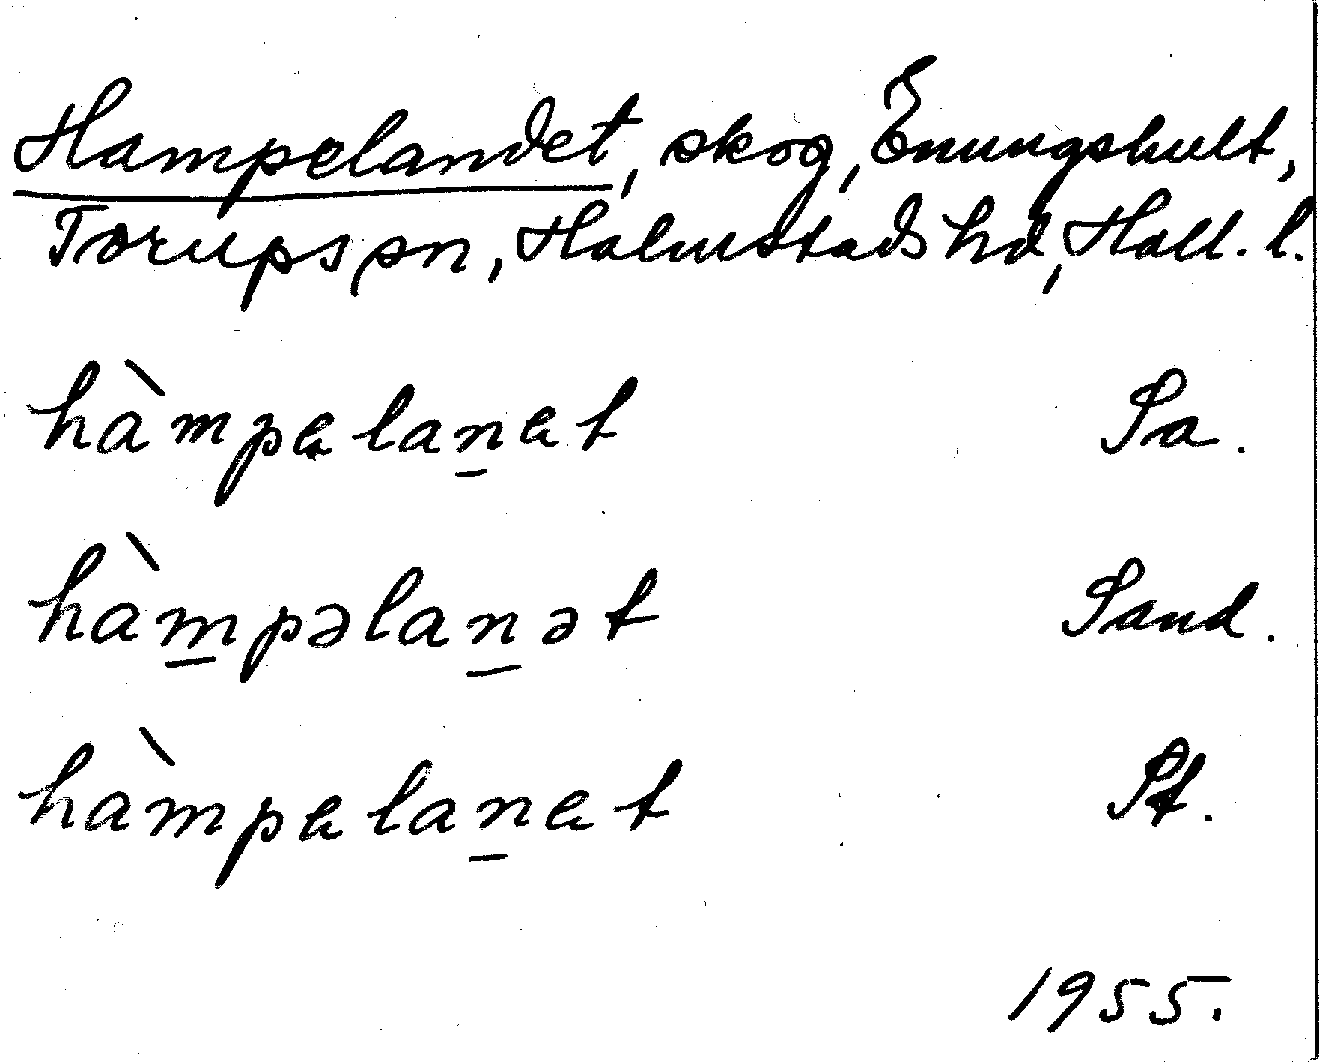 Hampelandet, skog, Enungshult,
Torups sn, Halmstads hd, Hall. l.
hàmpelanet Sa.
hàmpəlanət Sand.
hàmpelanet St.
1955.